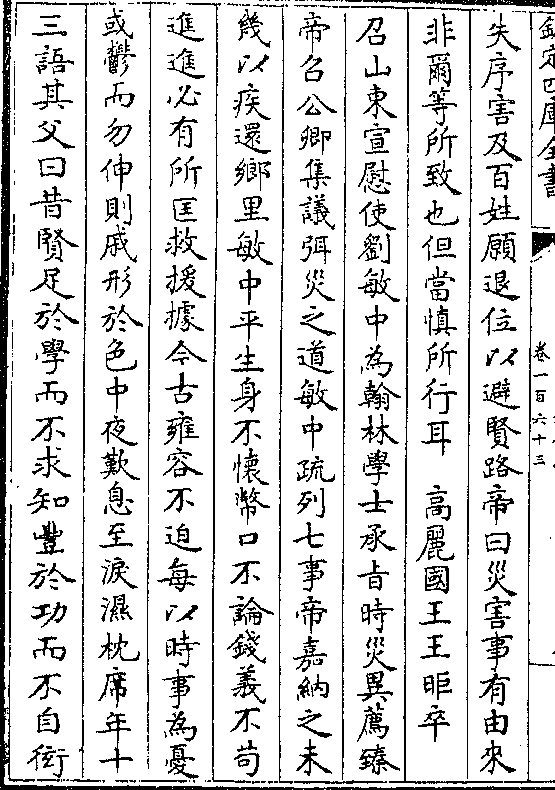 欽定四庫全書
卷一百六十三
失序害及百姓願退位以避賢路帝曰災害事有由來
非爾等所致也但當慎所行耳　高麗國王王昛卒
召山東宣慰使劉敏中為翰林學士承旨時災異薦臻
帝召公卿集議弭災之道敏中疏列七事帝嘉納之未
幾以疾還鄉里敏中平生身不懷幣口不論錢義不苟
進進必有所匡救援據今古雍容不迫每以時事為憂
或鬱而勿伸則戚形於色中夜歎息至淚濕枕席年十
三語其父曰昔賢足於學而不求知豐於功而不自衒